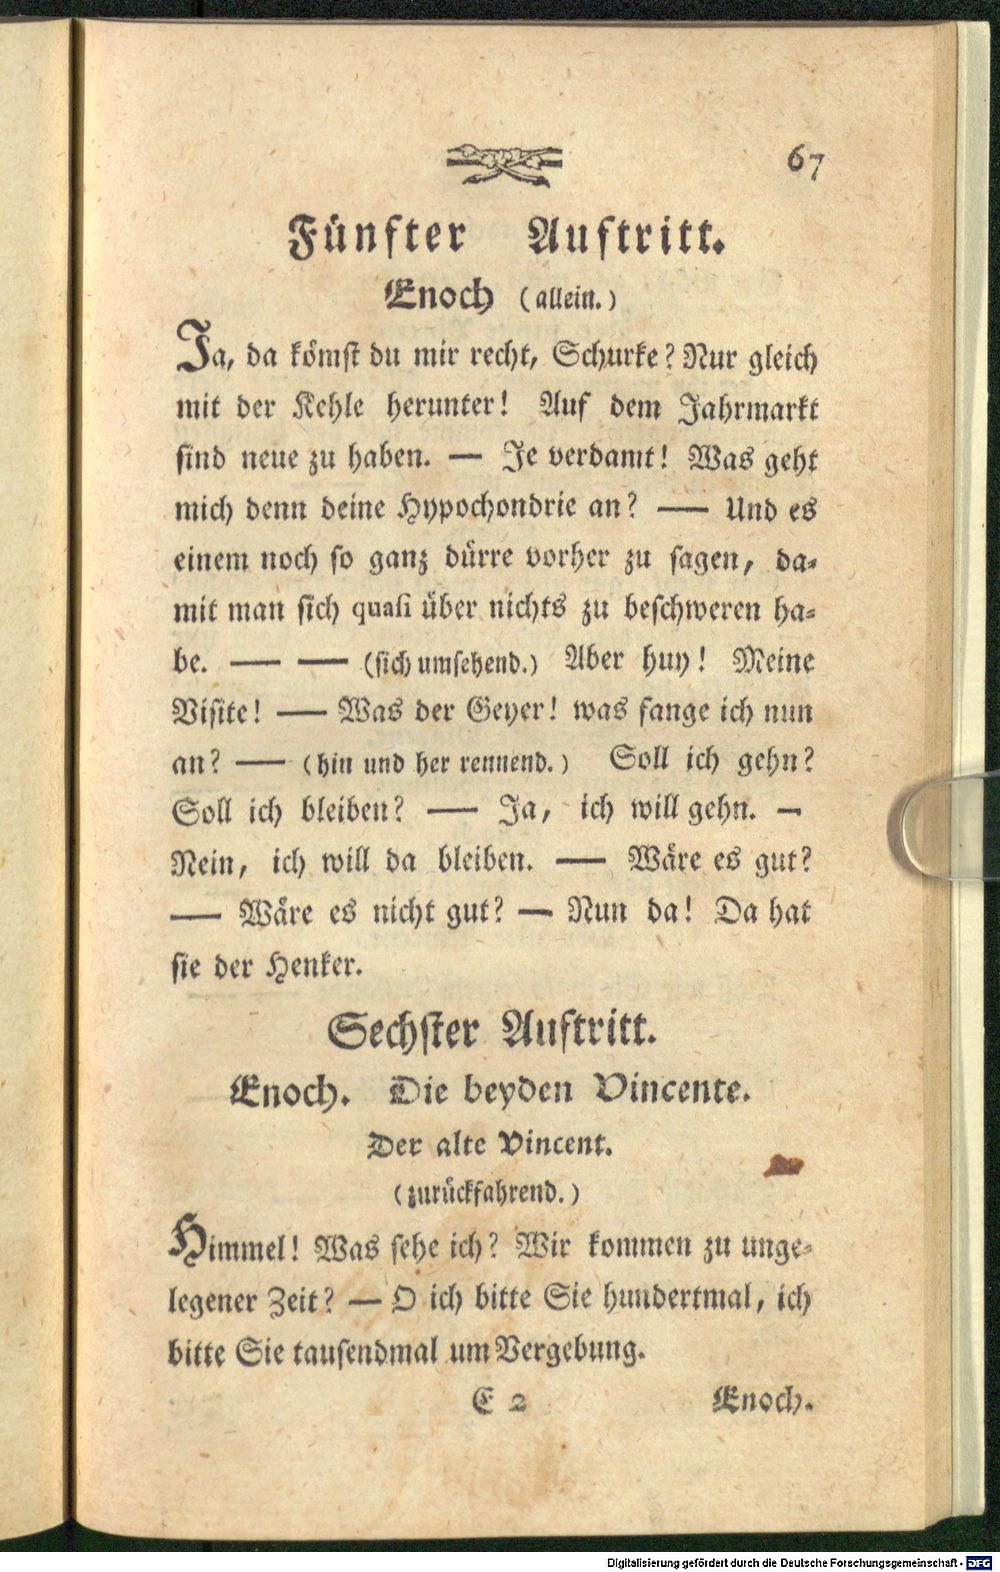 67
Fünfter Auftritt.
Enoch (allein.)
Ja, da kömst du mir recht, Schurke? Nur gleich
mit der Kehle herunter! Auf dem Jahrmarkt
sind neue zu haben. — Je verdamt! Was geht
mich denn deine Hypochondrie an? — Und es
einem noch so ganz dürre vorher zu sagen, da-
mit man sich quasi über nichts zu beschweren ha-
be. — — (sich umsehend.) Aber huy! Meine
Visite! — Was der Geyer! was fange ich nun
an? — (hin und her rennend.) Soll ich gehn?
Soll ich bleiben? — Ja, ich will gehn. —
Nein, ich will da bleiben. — Wäre es gut?
— Wäre es nicht gut? — Nun da! Da hat
sie der Henker.
Sechster Auftritt.
Enoch. Die beyden Vincente.
Der alte Vincent.
(zurückfahrend.)
Himmel! Was sehe ich? Wir kommen zu unge-
legener Zeit? — O ich bitte Sie hundertmal, ich
bitte Sie tausendmal um Vergebung.
E 2 Enoch.
Digitalisierung gefördert durch die Deutsche Forschungsgemeinschaft - DFG